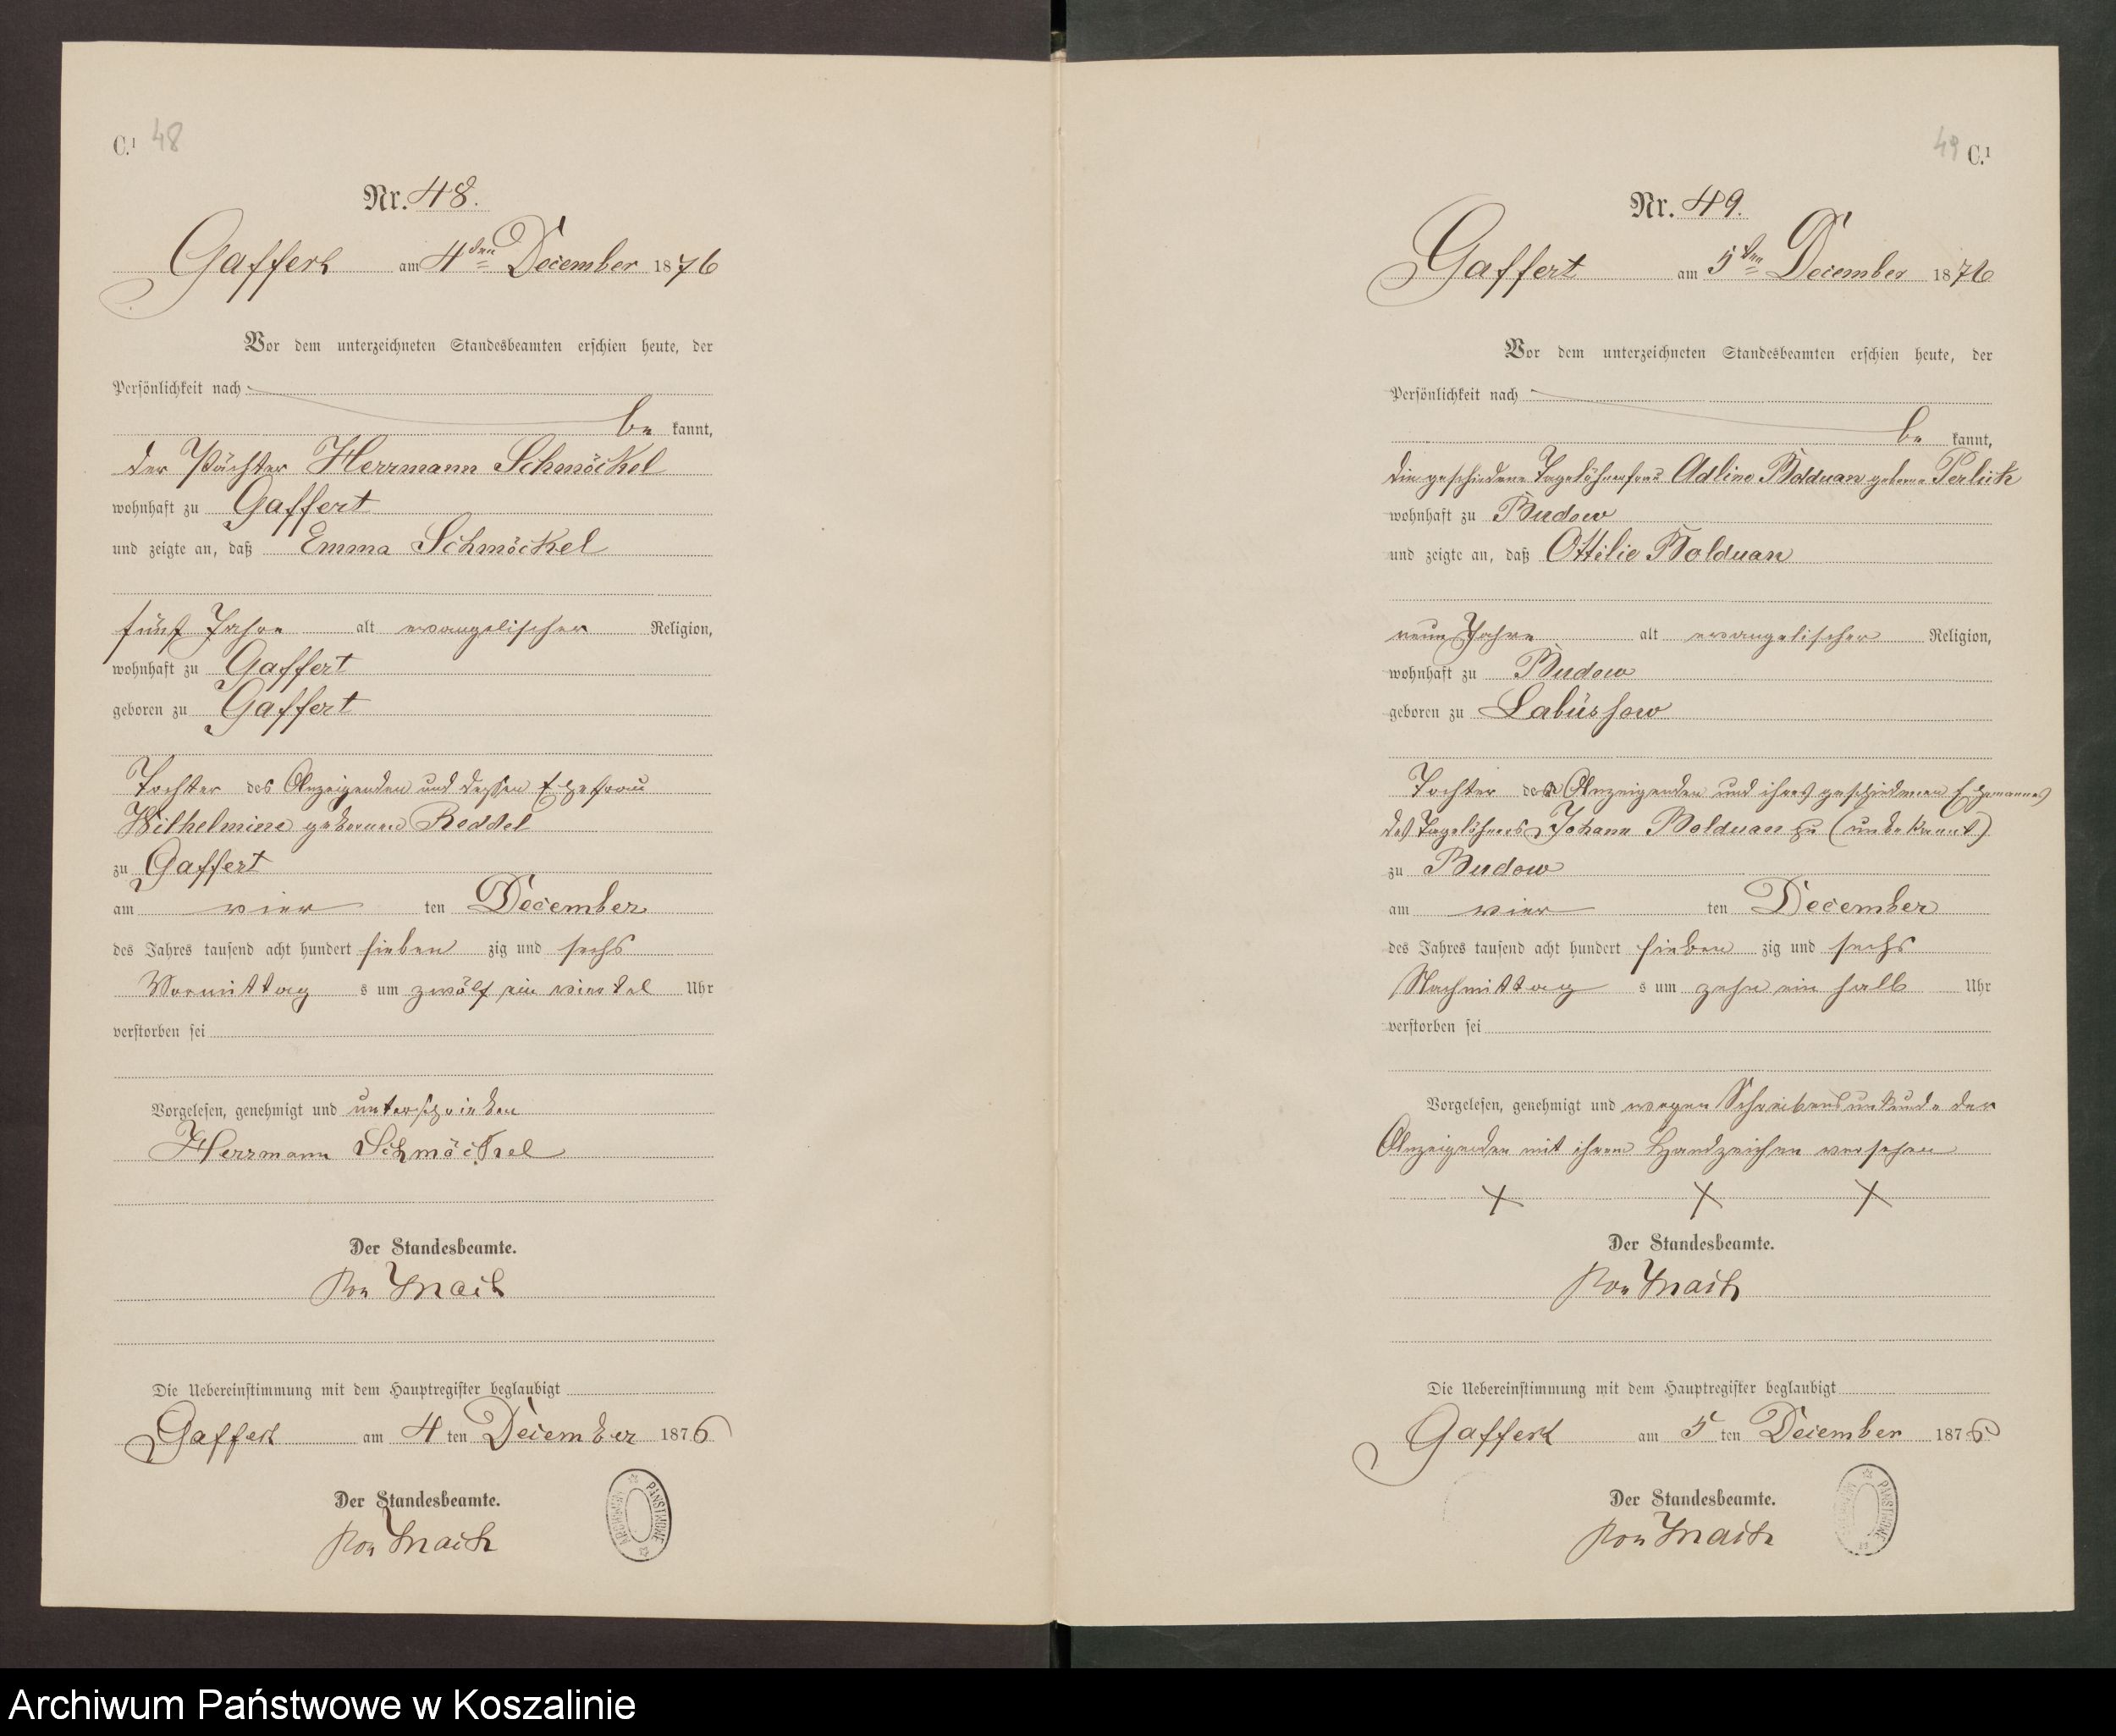 C.¹ 48
Nr. 48.
Gaffert am 4ten December 1876
Vor dem unterzeichneten Standesbeamten erschien heute, der
Persönlichkeit nach
be kannt,
der Pächter Herrmann Schmöckel
wohnhaft zu Gaffert
und zeigte an, daß Emma Schmöckel
fünf Jahre alt evangelischer Religion,
wohnhaft zu Gaffert
geboren zu Gaffert
Tochter des Anzeigenden und dessen Ehefrau
Wilhelmine geborenen Reddel
zu Gaffert
am vier ten December
des Jahres tausend acht hundert sieben zig und sechs
Vormittag s um zwölf ein viertel Uhr
verstorben sei
Vorgelesen, genehmigt und unterschrieben
Herrmann Schmöckel
Der Standesbeamte.
von
Die Uebereinstimmung mit dem Hauptregister beglaubigt
Gaffert am 4 ten December 1876
Der Standesbeamte.
von
ARCHIWUM PAŃSTWOWE
49 C.¹
Nr. 49.
Gaffert am 5ten December 1876
Vor dem unterzeichneten Standesbeamten erschien heute, der
Persönlichkeit nach
be kannt,
die geschiedene Tagelöhnerfrau Adline Bolduan geborne Perlick
wohnhaft zu Budow
und zeigte an, daß Ottilie Bolduan
neun Jahre alt evangelischer Religion,
wohnhaft zu Budow
geboren zu Labüssow
Tochter der Anzeigenden und ihres geschiedenen Ehemannes
des Tagelöhners Johann Bolduan zu (unbekannt)
zu Budow
am vier ten December
des Jahres tausend acht hundert sieben zig und sechs
Nachmittag s um zehn ein halb Uhr
verstorben sei
Vorgelesen, genehmigt und wegen Schreibensunkunde der
Anzeigenden mit ihrem Handzeichen versehen
+ + +
Der Standesbeamte.
von
Die Uebereinstimmung mit dem Hauptregister beglaubigt
Gaffert am 5 ten December 1876
Der Standesbeamte.
von
ARCHIWUM PAŃSTWOWE
Archiwum Państwowe w Koszalinie